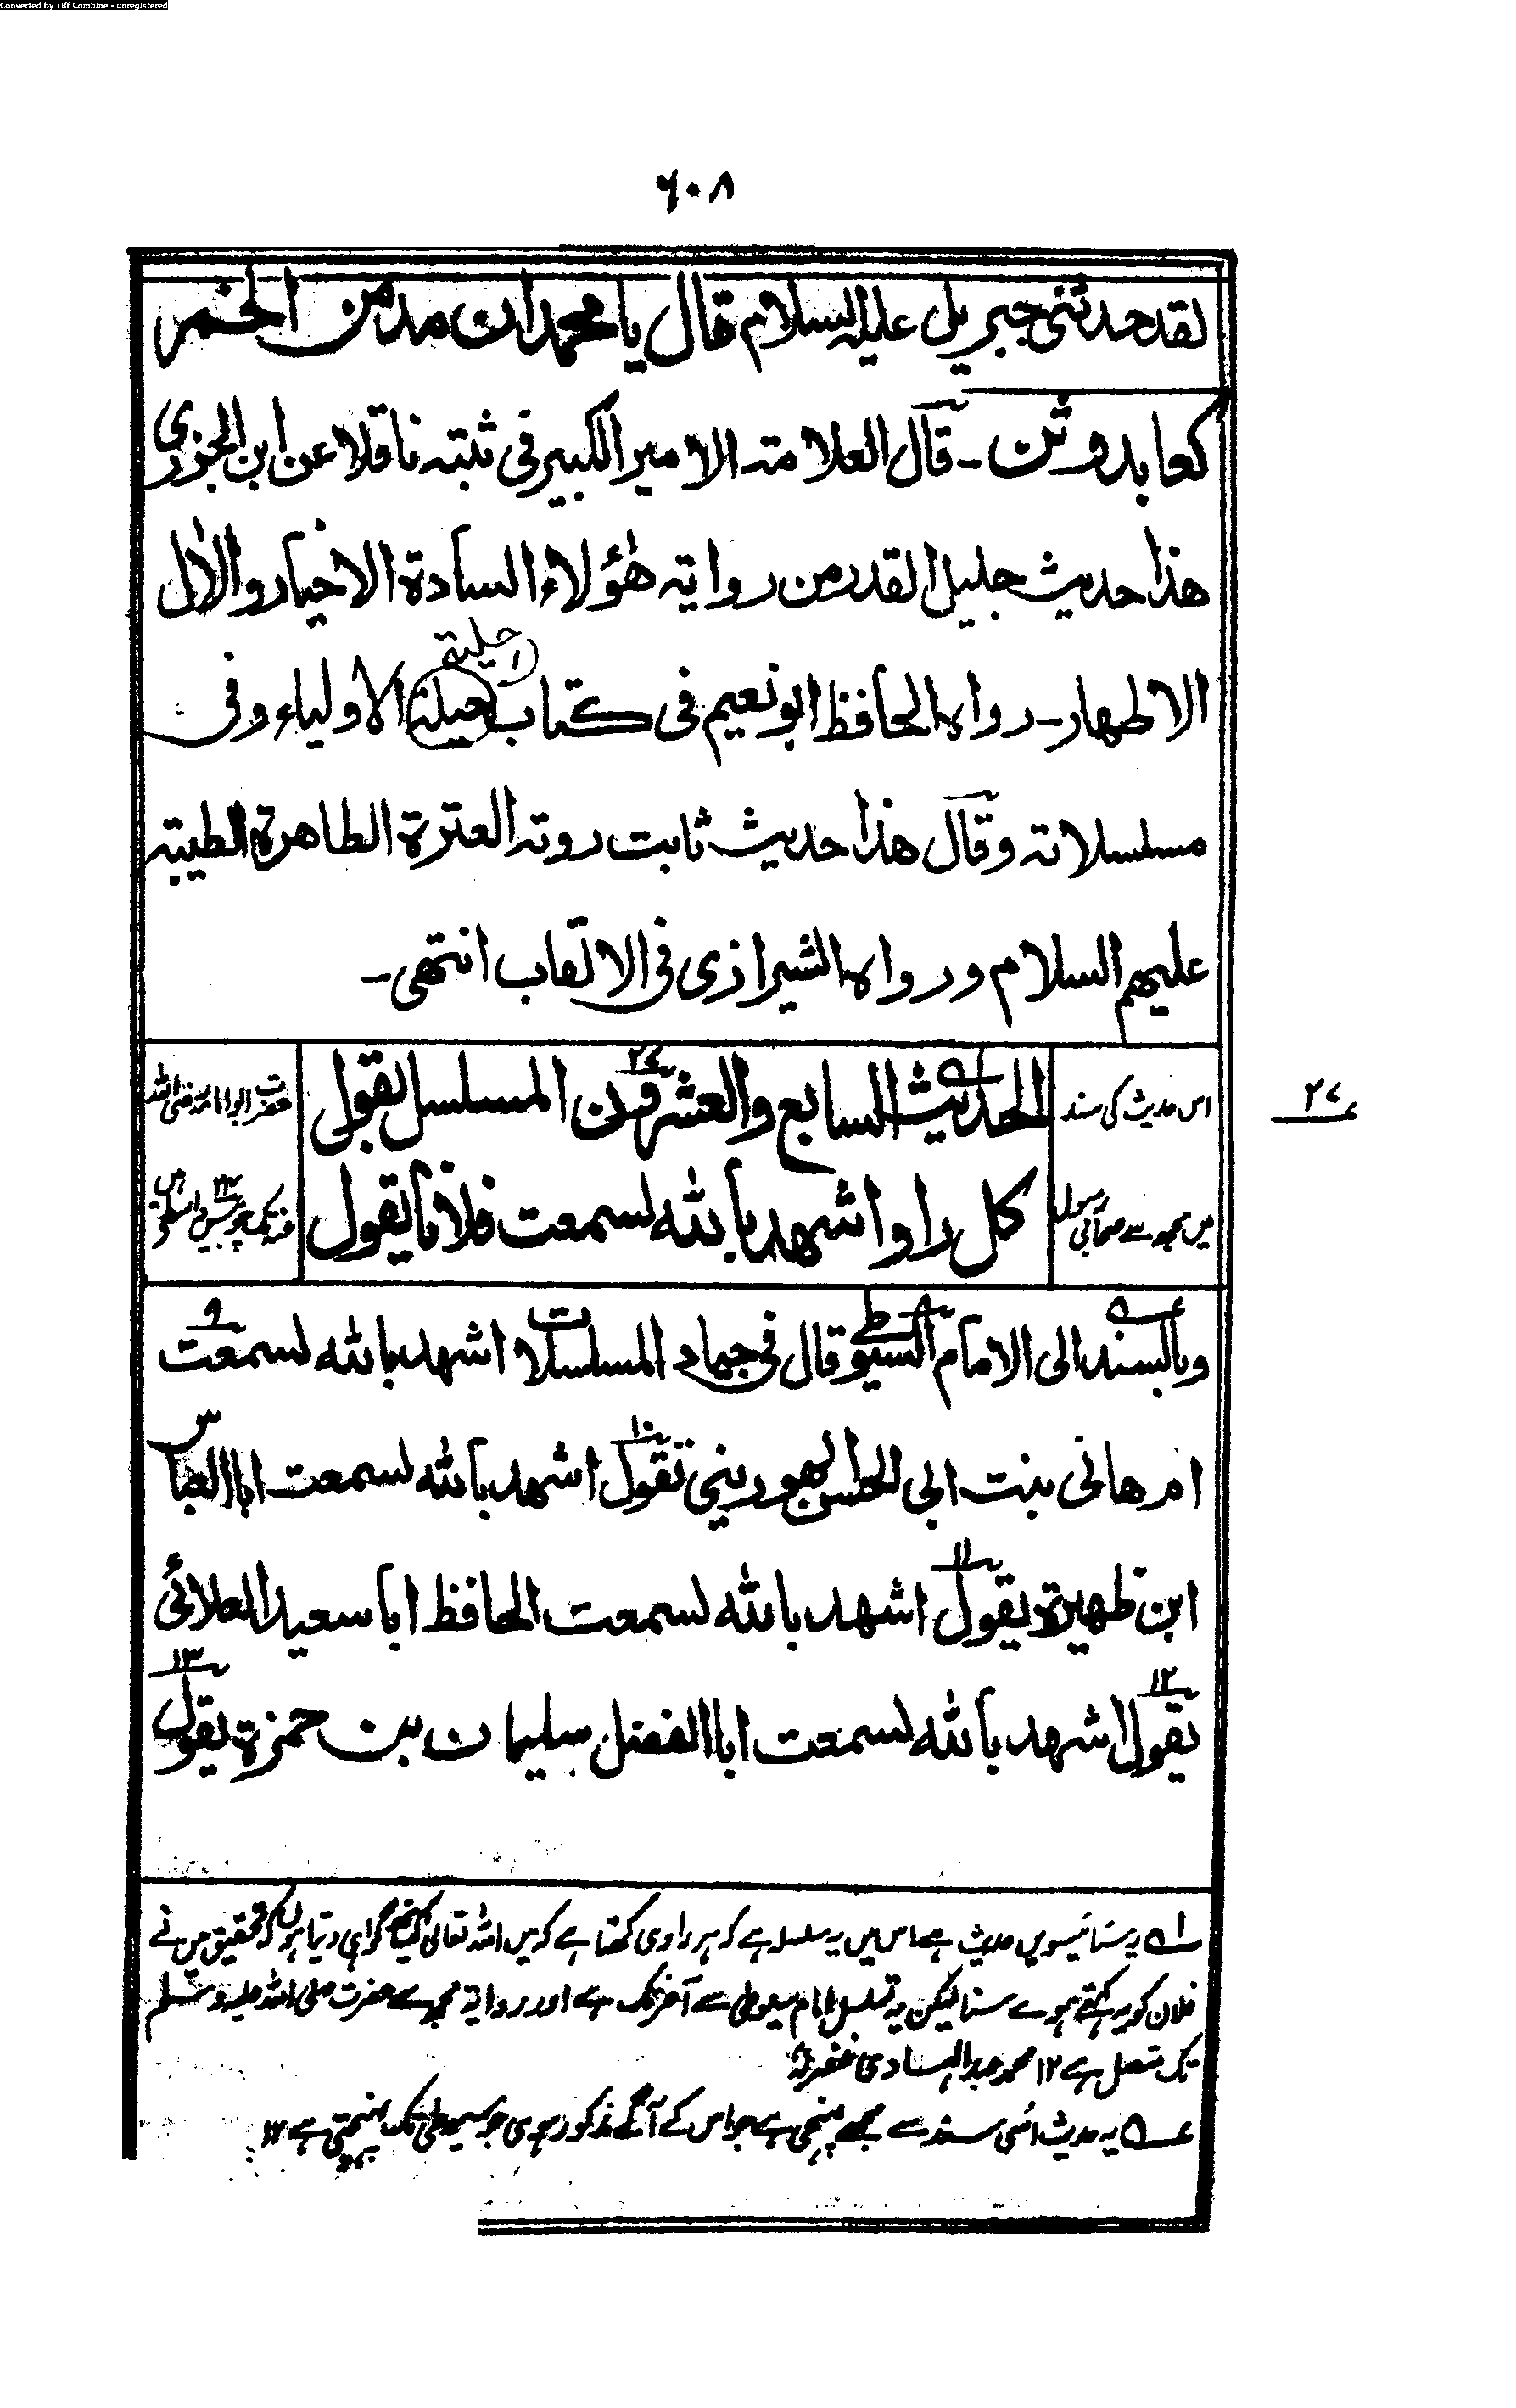 Converted by Tiff Combine - unregistered
۶۰۸
لقد حدثنی جبریل علیہ السلام قال یا محمد ان مدمن الخمر
کعابد وثن - قال العلامۃ الامیر الکبیر فی ثبتہ ناقلا عن ابن الجزری
ھذا حدیث جلیل القدر من روایتہ ھؤلاء السادۃ الاخیار والاٰل
حلیۃ
الاطہار - رواہ الحافظ ابو نعیم فی کتاب حیلۃ الاولیاء وفی
مسلسلاتہ وقال ھذا حدیث ثابت روتہ العترۃ الطاھرۃ الطیبۃ
علیہم السلام ورواہ الشیرازی فی الالقاب انتھی -
۲۷
الحدیث السابع والعشرون المسلسل بقول
کل راو اشھد باللہ لسمعت فلانا یقول
اس حدیث کی سند
میں مجھ سے صحابی رسول
حضرت ابو امامہ رضی اللہ
تک چوبیس واسطے ہیں
وبالسند الی الامام السیوطی قال فی جیاد المسلسلات اشھد باللہ لسمعت
ام ھانی بنت ابی الحسن الھورینی تقول اشھد باللہ لسمعت ابا العباس
ابن ظھیرۃ یقول اشھد باللہ لسمعت الحافظ ابا سعید العلائی
یقول اشھد باللہ لسمعت ابا الفضل سلیمان بن حمزۃ یقول
لے یہ ستائیسویں حدیث ہے اس میں یہ سلسلہ ہے کہ ہر راوی کہتا ہے کہ میں اللہ تعالیٰ گواہی دیتا ہوں کہ تحقیق میں نے
فلان کو یہ کہتے ہوے سنا لیکن یہ تسلسل امام سیوطی سے آخر تک ہے اور روایۃ مجھ سے حضرت صلی اللہ علیہ وسلم
تک متصل ہے ۱۲ محمد عبد الہادی غفرلہ
عے یہ حدیث اُسی سند سے مجھے پہنچی ہے جو اس کے آگے مذکور ہوی جو سیوطی تک پہنچتی ہے ۱۲